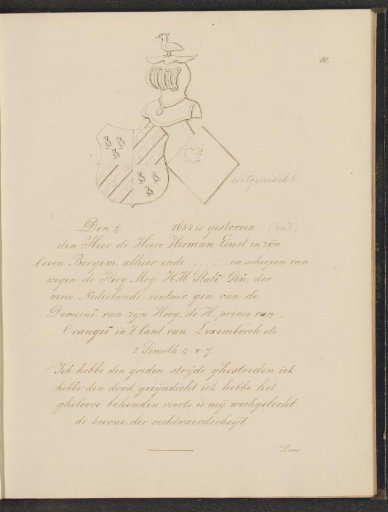 10.
uitgewischt
Den 4 1654 is gestorven
den Heer de Heere Herman Ernst in zijn
leven Borgem. alhier ende ..... en schepen van
wegen de Hoog Mog. H.H. Stat. Gen. der
vere. Nederlande rentmr. gen. van de
Domeine van zijn Hoog. de H. prince van
Orangie in't lant van Luxemborch etc.
2 Timoth 4 v 7
Ick hebbe den goeden strijdt ghestreden ick
hebbe den loop geeyndicht ick hebbe het
gheloove behouden voorts is mij wechgeleeht
de kroone der rechtvaerdicheijt